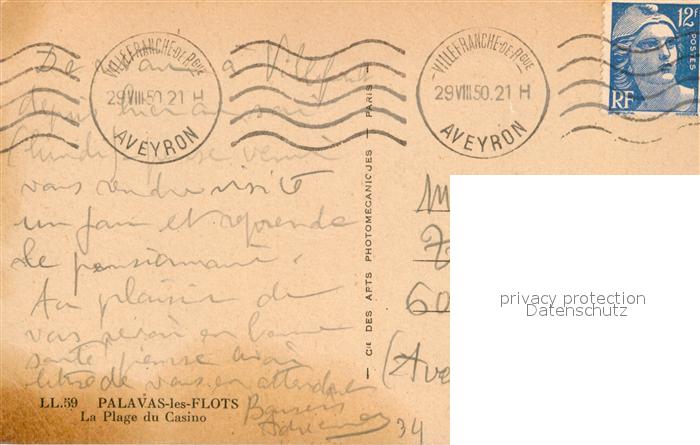 VILLEFRANCHE-DE-RGUE
29 VIII 50.21 H
AVEYRON
VILLEFRANCHE-DE-RGUE
29 VIII 50.21 H
AVEYRON
12F
POSTES
RF
De à
depuis hier au soir
(lundi) venir
vous rendre visite
un jour et reprendre
le pensionnaire.
Au plaisir de
vous en bonne
santé
vous, en attendant
Baisers
34
(Ave
60
Cie DES ARTS PHOTOMÉCANIQUES — PARIS
privacy protection
Datenschutz
LL.59 PALAVAS-les-FLOTS
La Plage du Casino